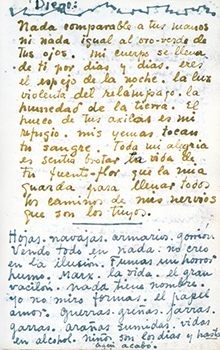 Diego:
Nada comparable a tus manos
ni nada igual al oro-verde de
tus ojos. mi cuerpo se llena
de ti por días y días. eres
el espejo de la noche. la luz
violenta del relámpago. la
humedad de la tierra. El
hueco de tus axilas es mi
refugio. mis yemas tocan
tu sangre. Toda mi alegría
es sentir brotar la vida de
tu fuente-flor que la mia
guarda para llenar todos
los caminos de mis nervios
que son los tuyos.
Hojas. navajas. armario. gorrion
Vendo todo en nada. no creo
en la ilusión. Fumas un horror
humo. Marx. la vida. el gran
vacilón. nada tiene nombre.
yo no miro formas. el papel
amor. guerras. greñas. jarras.
garras. arañas sumidas. vidas
en alcohol. niños son los dias y hasta
aquí acabó.